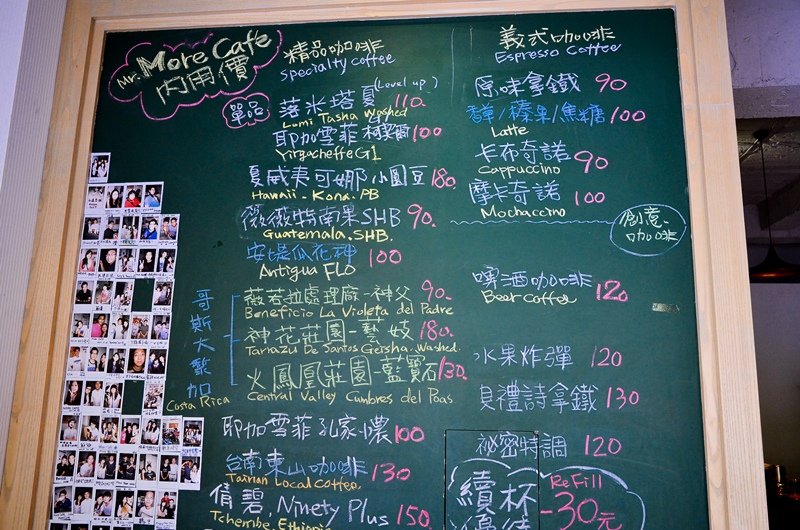 Mr. More Cafe
內用價
精品咖啡
Specialty Coffee
單品
(Level up)
落米塔夏 110.
Lumi Tasha Washed
耶加雪菲 100
Yirgacheffe G1
夏威夷可娜小圓豆 180.
Hawaii. Kona. PB
薇薇特南果SHB 90.
Guatemala. SHB.
安堤瓜花神 100
Antigua FLO
哥斯大黎加
Costa Rica
薇若拉處理廠-神父 90.
Beneficio La Violeta del Padre
神花莊園-藝妓 180.
Tarrazu De Santos Geisha. Washed
火鳳凰莊園-藍寶石 130.
Central Valley Cumbres del Poas
耶加雪菲孔家-濃 100
台南東山咖啡 130
Tainan Local Coffee.
倩碧.Ninety Plus 150
Tchembe. Ethiopia
義式咖啡
Espresso Coffee
原味拿鐵 90
香草/榛果/焦糖 100
Latte
卡布奇諾 90
Cappuccino
摩卡奇諾 100
Mochaccino
創意咖啡
啤酒咖啡 120
Beer Coffee
水果炸彈 120
貝禮詩拿鐵 130
祕密特調 120
續杯
Refill
-30元